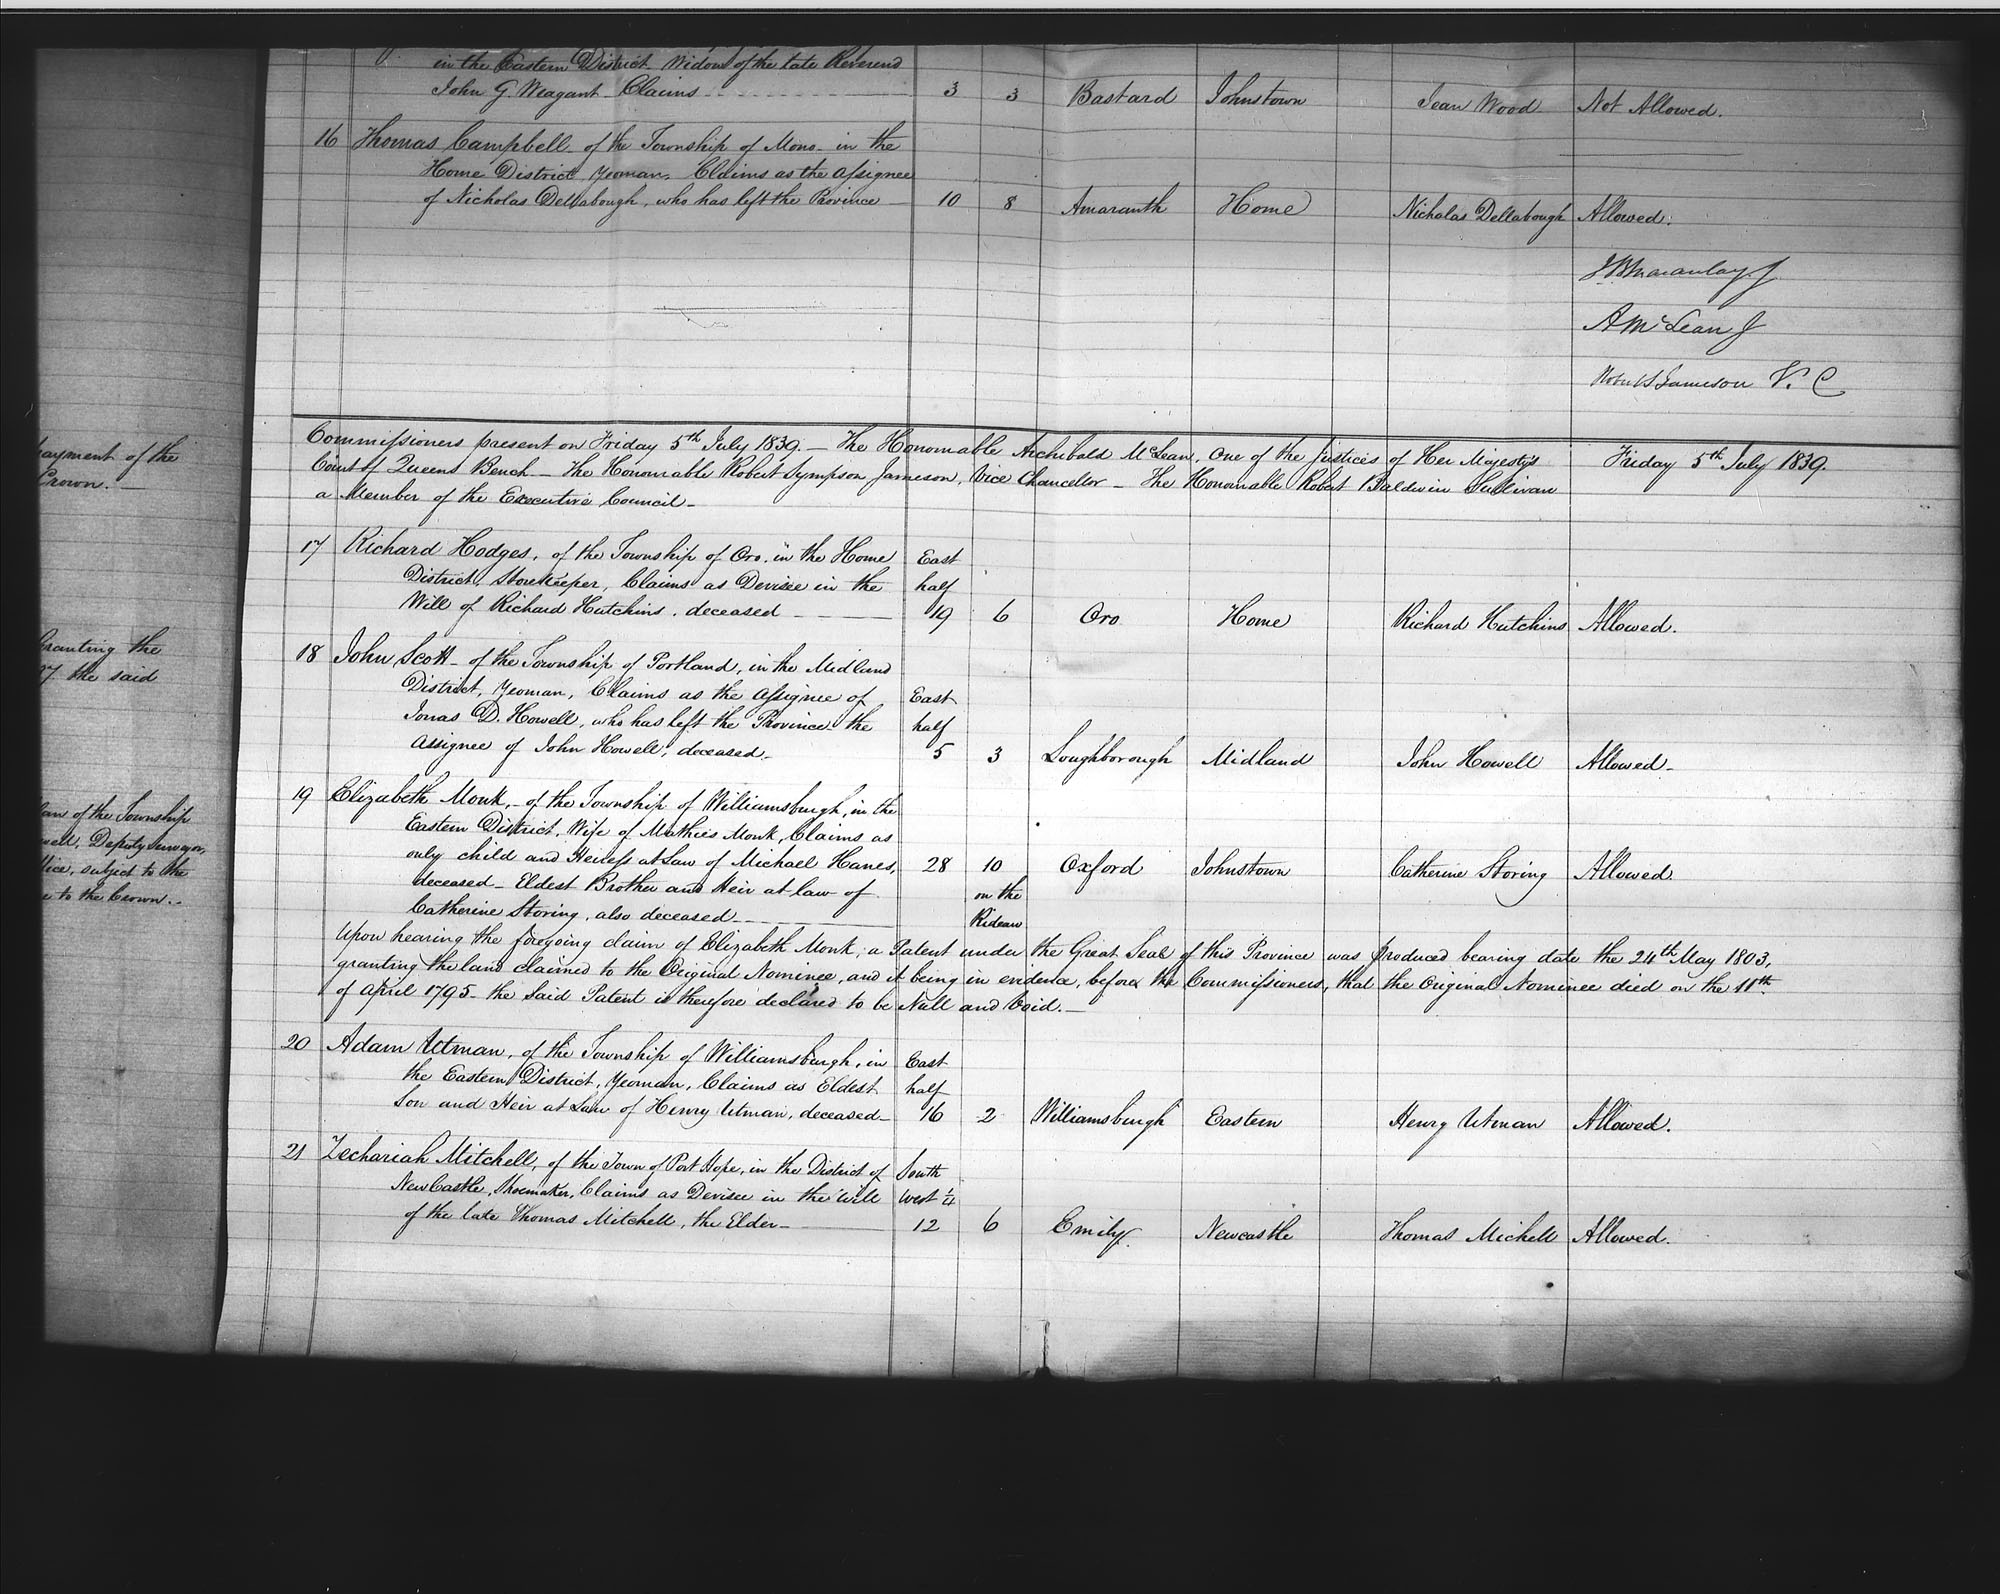 in the Eastern District. Widow of the late Reverend
John G. Weagant Claims 3 3 Bastard Johnstown Jean Wood Not Allowed.
16 Thomas Campbell of the Township of Mono in the
Home District, Yeoman. Claims as the Assignee
of Nicholas Dellabough, who has left the Province 10 8 Amaranth Home Nicholas Dellabough Allowed.
J. B. Macaulay. J
A McLean J
Robert S Jameson V. C
payment of the
Crown.
Granting the
the said
of the Township
Deputy Surveyor,
subject to the
to the Crown.
Commissioners present on Friday 5th July 1839. – The Honourable Archibald McLean, One of the Justices of Her Majesty's Friday 5th July 1839.
Court of Queens Bench – The Honourable Robert Sympson Jameson, Vice Chancellor – The Honourable Robert Baldwin Sullivan
a Member of the Executive Council –
17 Richard Hodges, of the Township of Oro, in the Home East
District, Storekeeper, Claims as Devisee in the half
Will of Richard Hutchins, deceased 19 6 Oro Home Richard Hutchins Allowed.
18 John Scott – of the Township of Portland, in the Midland
District, Yeoman, Claims as the Assignee of East
Jonas D. Howell, who has left the Province the half
Assignee of John Howell, deceased – 5 3 Loughborough Midland John Howell Allowed –
19 Elizabeth Monk, – of the Township of Williamsburgh, in the
Eastern District, Wife of Mathies Monk, Claims as
only child and Heiress at Law of Michael Hanes, 28 10 Oxford Johnstown Catherine Storing Allowed
deceased – Eldest Brother and Heir at law of on the
Catherine Storing, also deceased – Rideau
Upon hearing the foregoing claim of Elizabeth Monk, a Patent under the Great Seal of this Province was produced bearing date the 24th May 1803,
granting the land claimed to the Original Nominee, and it being in evidence, before the Commissioners, that the Original Nominee died on the 11th
of April 1795 – the said Patent is therefore declared to be Null and Void. –
20 Adam Utman, of the Township of Williamsburgh, in East
the Eastern District, Yeoman, Claims as Eldest half
Son and Heir at Law of Henry Utman, deceased – 16 2 Williamsburgh Eastern Henry Utman Allowed.
21 Zechariah Mitchell, of the Town of Port Hope, in the District of South
NewCastle, Shoemaker, Claims as Devisee in the Will West 1/4
of the late Thomas Mitchell, the Elder – 12 6 Emily Newcastle Thomas Michell Allowed.